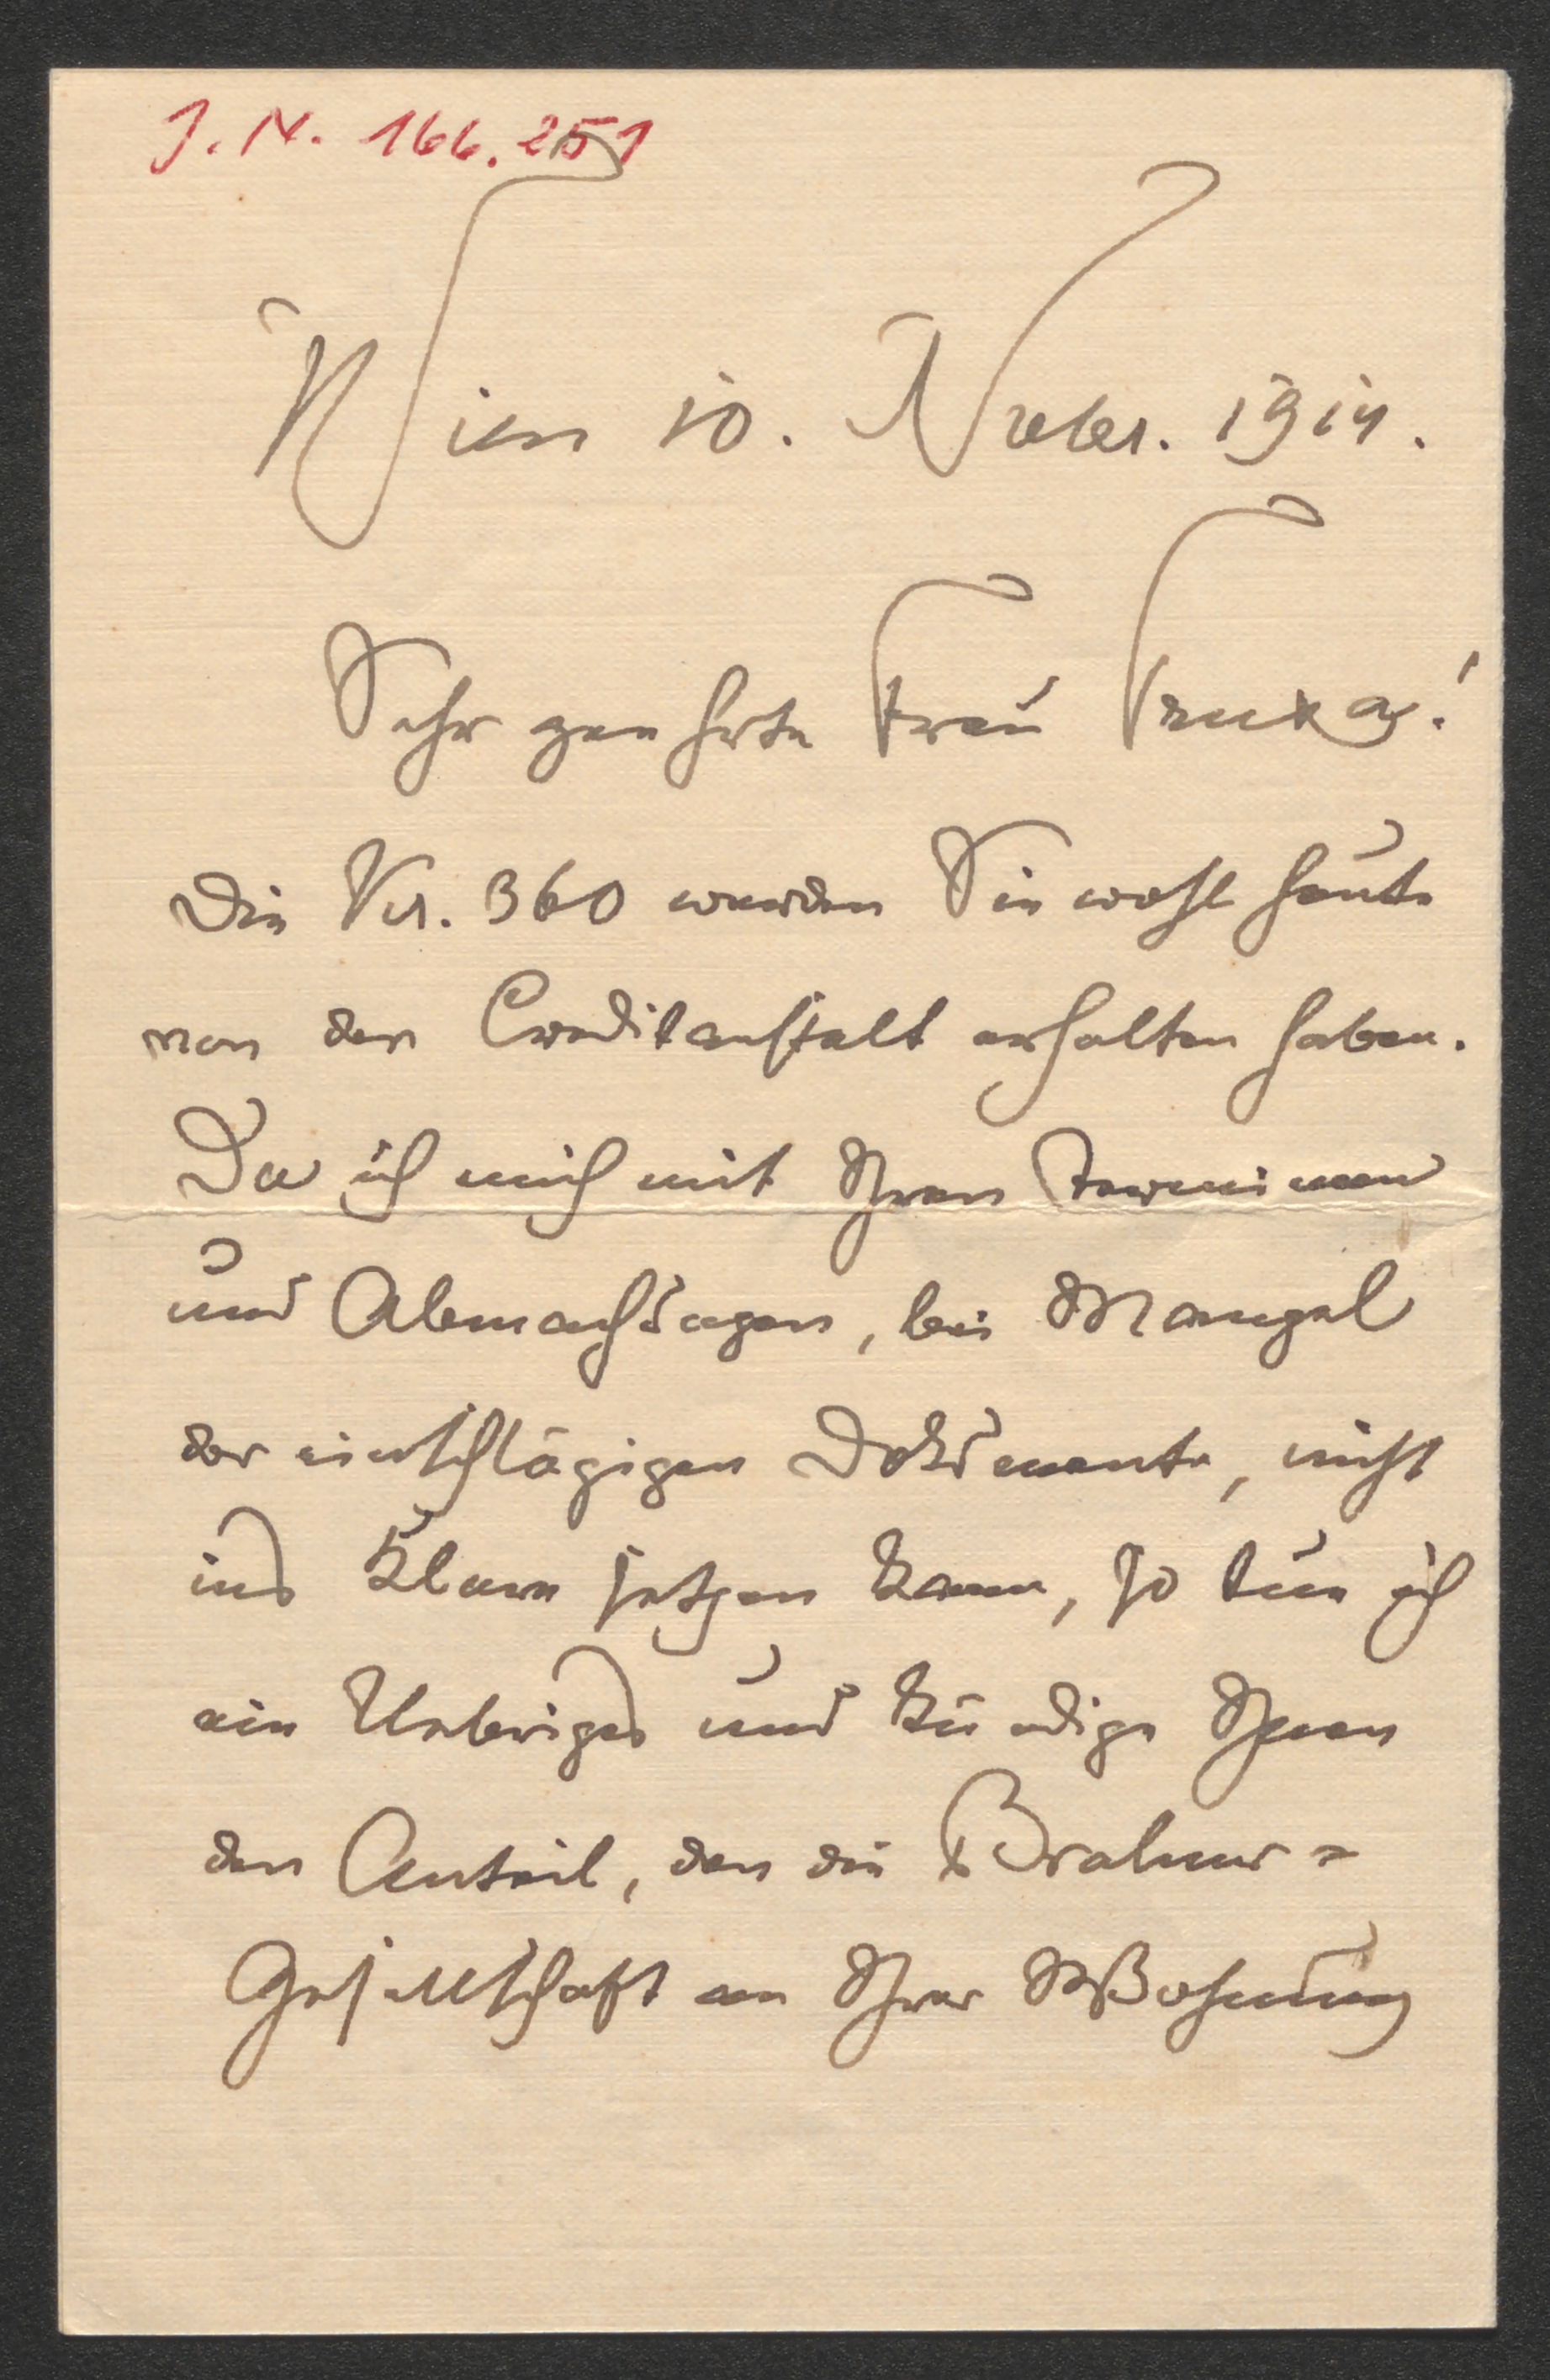 J. N. 166.251
Wien 10. Novber. 1914.
Sehr geehrte Frau Truxa!
Die Kr. 360 werden Sie wohl heute
von der Creditanstalt erhalten haben.
Da ich mich mit Ihren Terminen
und Abmachungen, bei Mangel
der einschlägigen Dokumente, nicht
ins Klare setzen kann, so tue ich
ein Uebriges und kündige Ihnen
den Anteil, den die Brahms-
Gesellschaft an Ihrer Wohnung